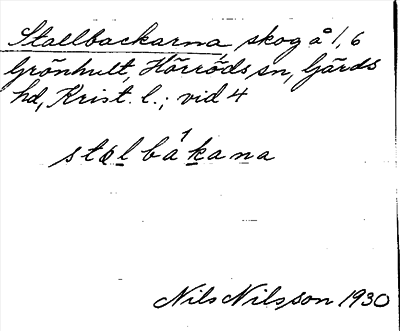 Stallbackarna, skog å 1, 6
Grönhult, Hörröds sn, Gärds
hd, Krist. l.; vid 4
stɑlbàkana
Nils Nilsson 1930